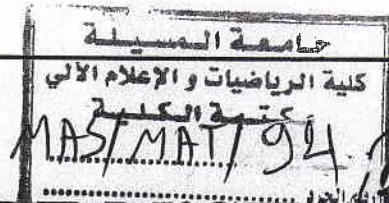 جامعة المسيلة
كلية الرياضيات و الإعلام الآلي
مكتبة الكلية
MAS/MAT/94